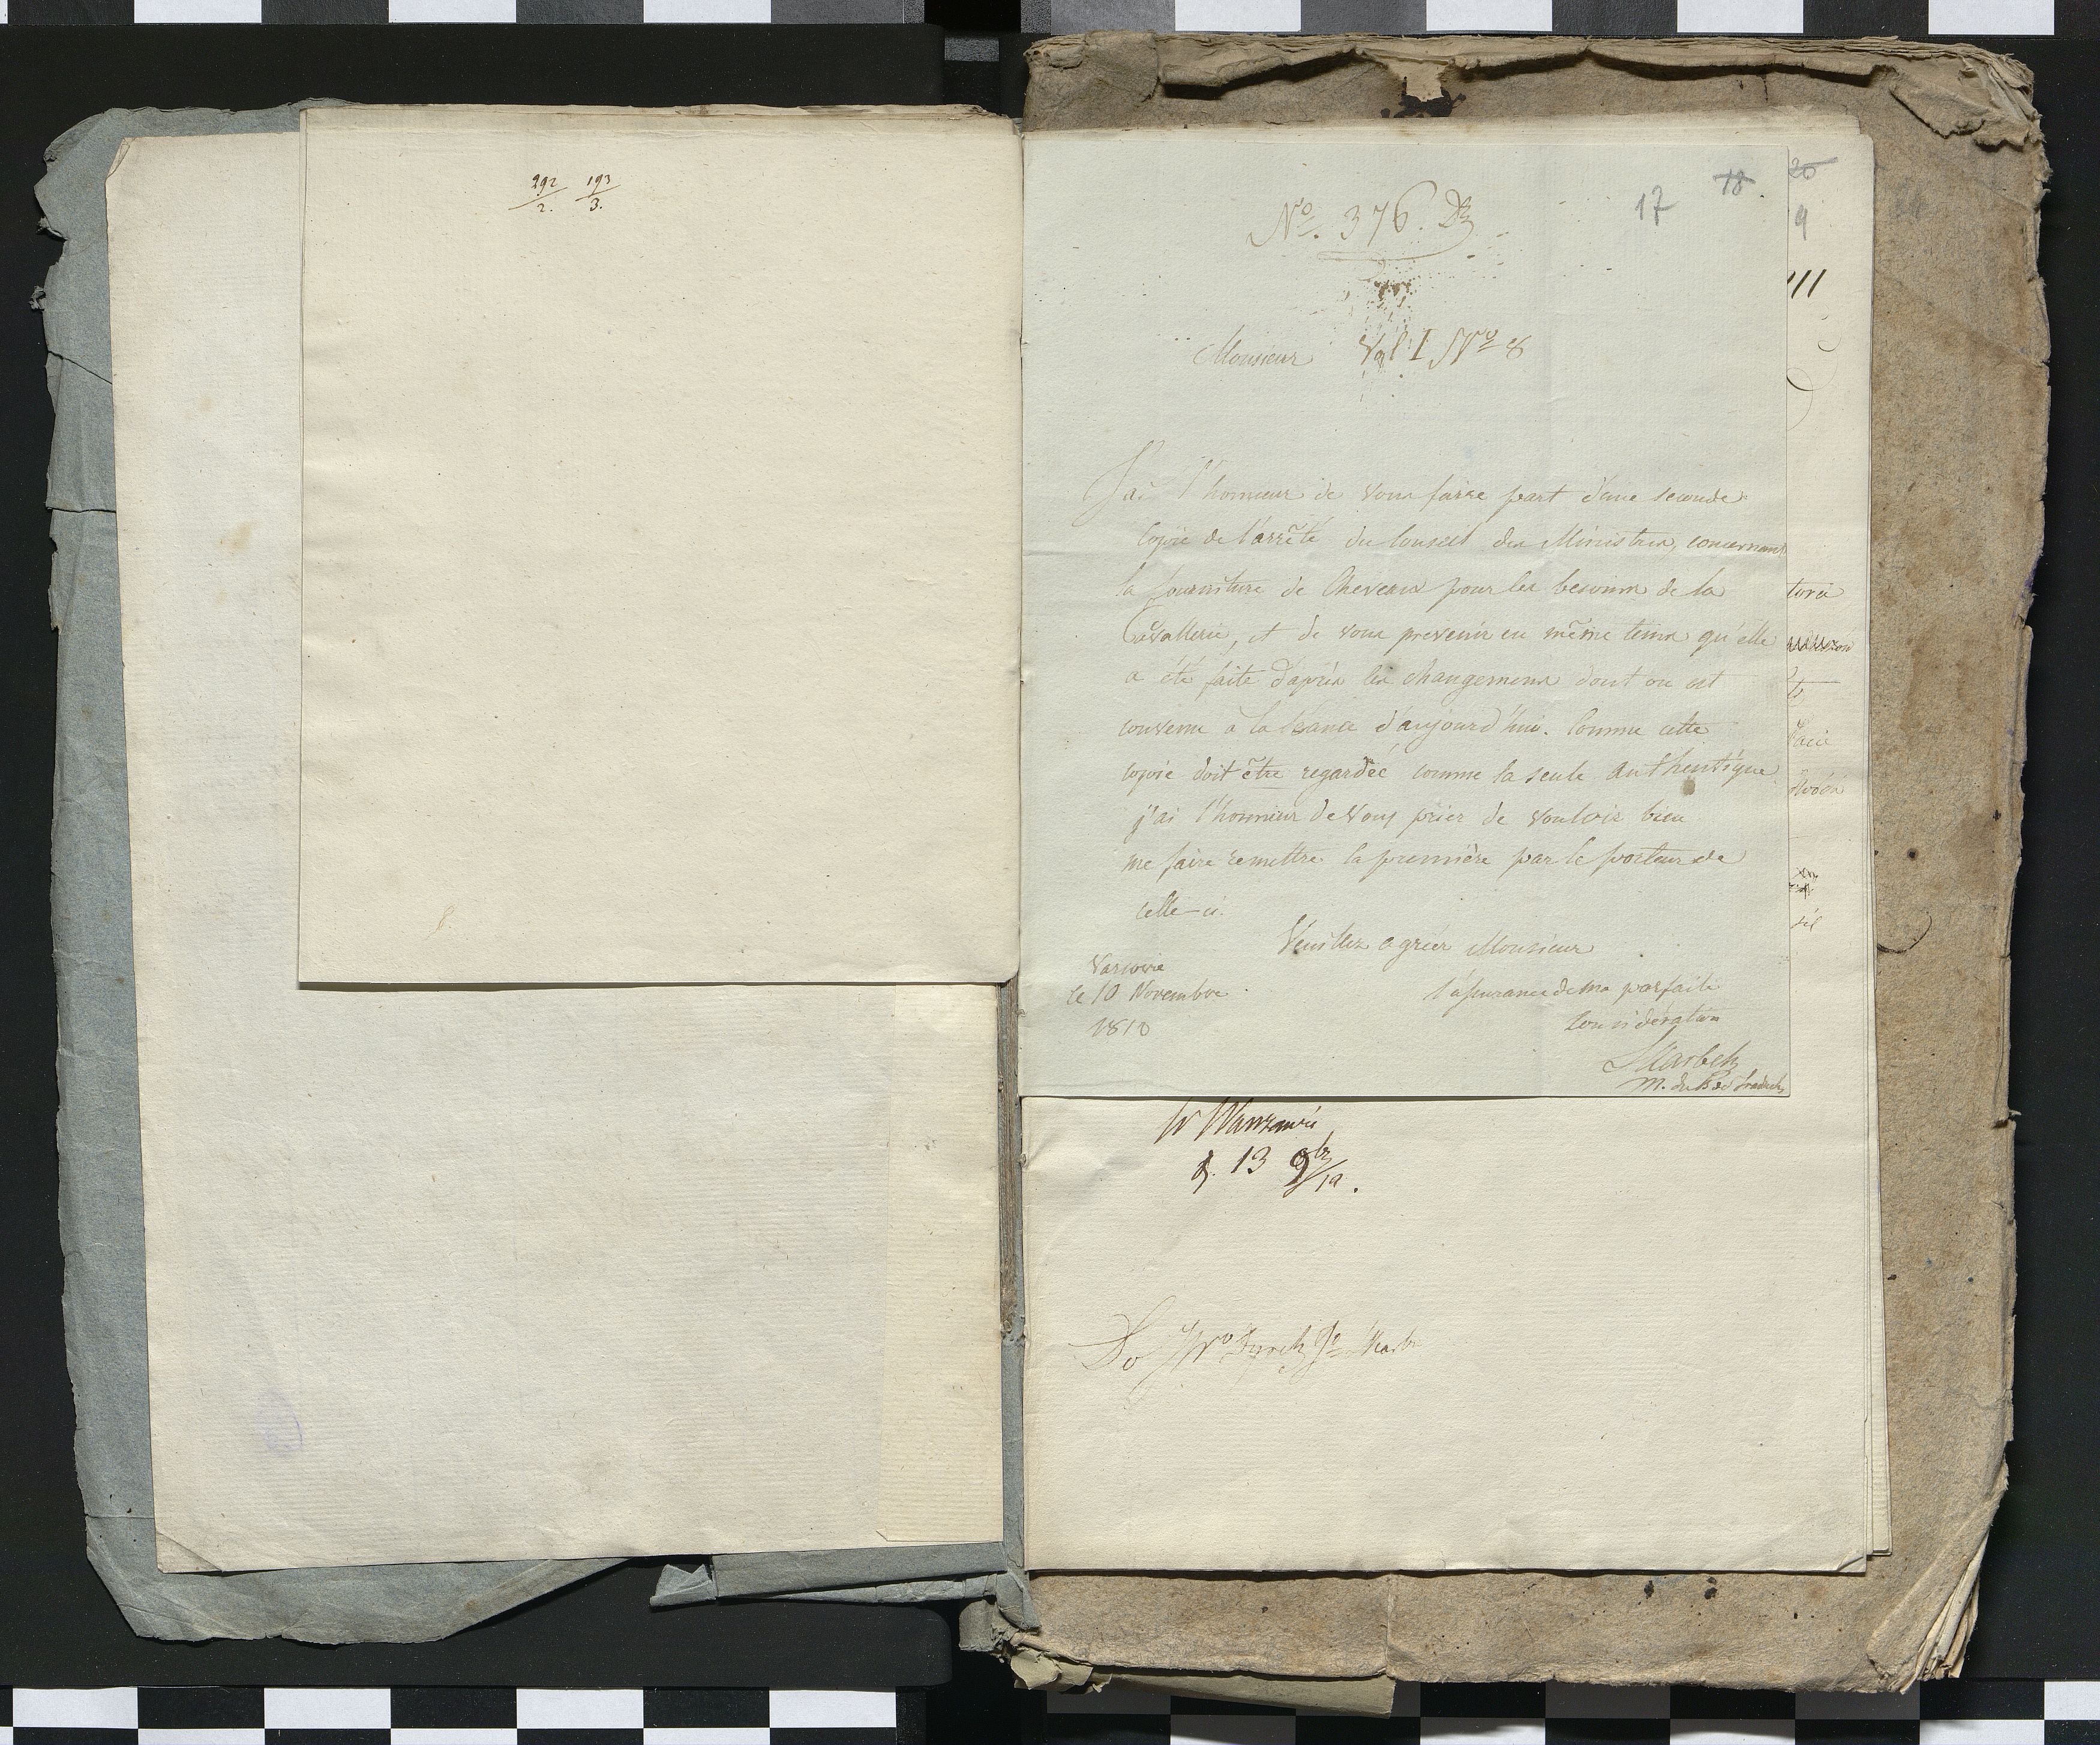 292/2. 193/3.
17 18 20
No. 376.
9
Monsieur Vol I No 8
J'ai l'honneur de vous faire part d'une seconde
copie de l'arrêté du Conseil des Ministres, concernant
la fourniture de Chevaux pour les besoins de la
Cavallerie, et de vous prevenir en même tems qu'elle
a été faite d'après les changemens dont on est
convenu à la séance d'aujourd'hui. Comme cette
copie doit être regardée comme la seule authentique
j'ai l'honneur de vous prier de vouloir bien
me faire remettre la première par le porteur de
celle-ci.
Veuillez agréer Monsieur
l'assurance de ma parfaite
consideration
Varsovie
le 10 Novembre
1810
Skarbek
W Warszawie
d. 13 9br/10.
Do